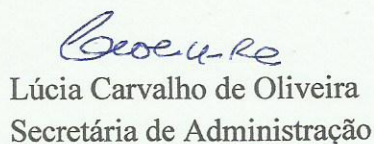 Lúcia Carvalho de Oliveira
Secretária de Administração